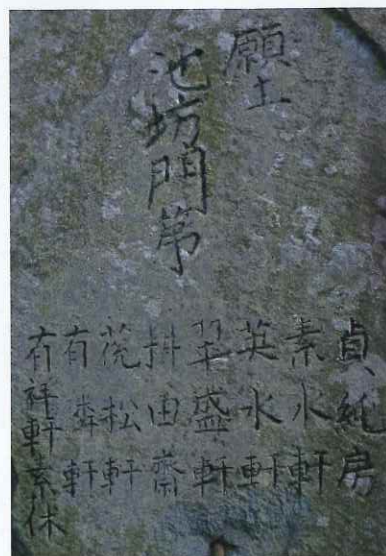 願主
池坊門第
貞純房
素水軒
英水軒
翠盛軒
抖由齋
莐松軒
有隣軒
有祥軒素休